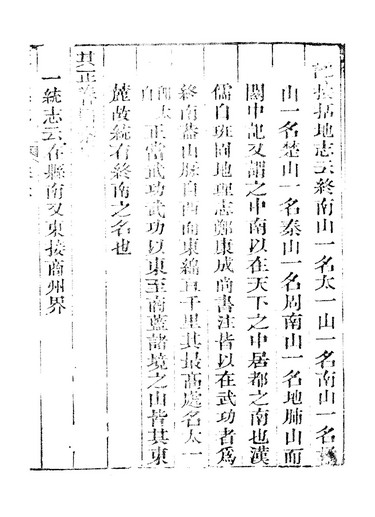 記括地志云終南山一名太一山一名南山一名
山一名楚山一名泰山一名周南山一名地肺山而
關中記又謂之中南以在天下之中居都之南也漢
儒自班固地理志鄭康成尚書注皆以在武功者爲
終南蓋山脉自西向東綿亘千里其最高處名太一
正當武功武功以東至商藍諸境之山皆其東
麓故統有終南之名也
其正
一統志云在縣南又東接商州界